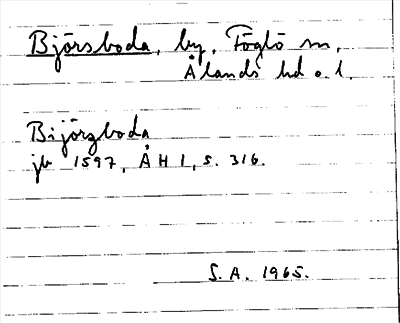 Björsboda, by, Föglö sn,
Ålands hd o. l.
Bijörgboda
jb 1597, ÅH 1, s. 316.
S. A. 1965.